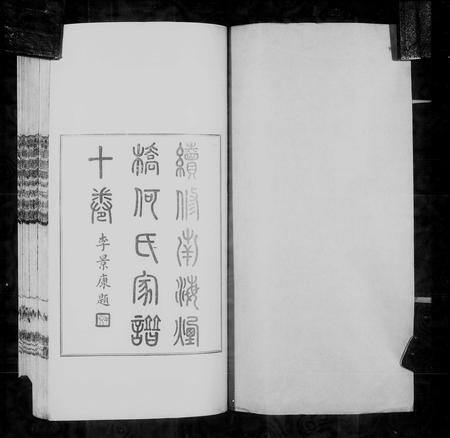 續修南海煙
橋何氏家譜
十卷
李景康題